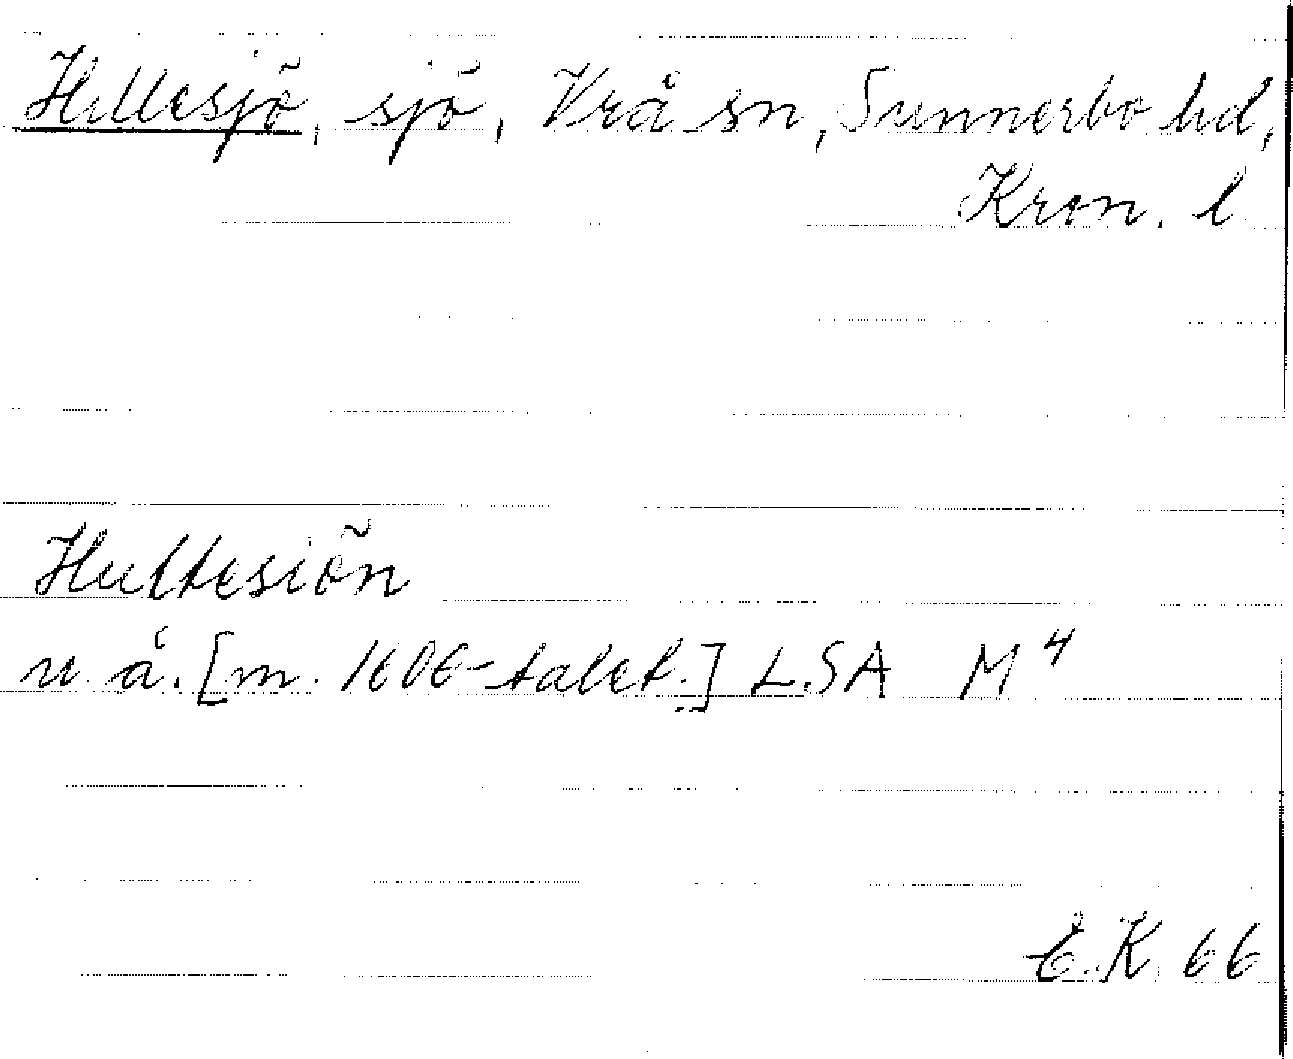 Hillesjö, sjö, Vrå sn, Sunnerbo hd,
Kron. l
Hultesiön
u. å. [m. 1600-talet.] LSA M 4
E.K. 66